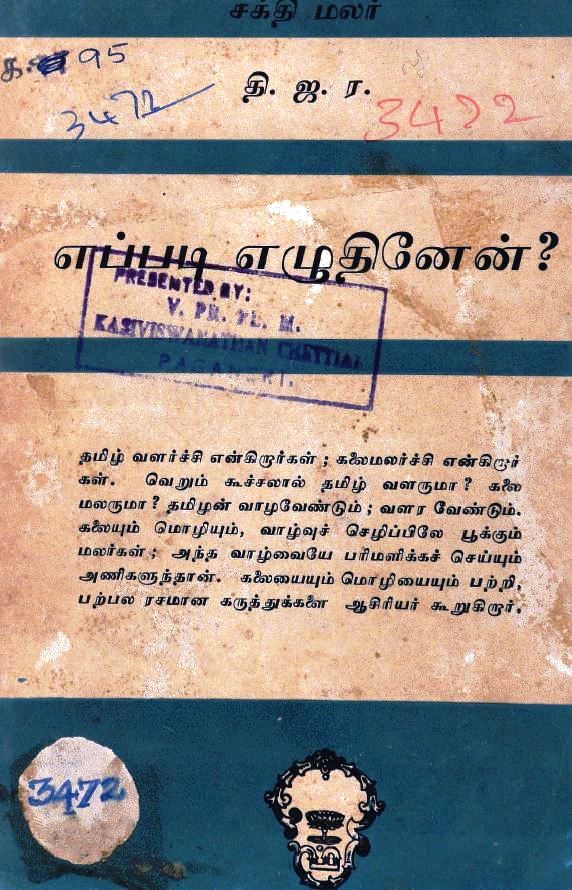 சக்தி மலர்
க. 95
தி. ஜ. ர.
3472
3472
எப்படி எழுதினேன்?
PRESENTED BY:
V. PR. PL. M.
KASIVISWANATHAN CHETTIAR
PAGANERI.
தமிழ் வளர்ச்சி என்கிறார்கள் ; கலைமலர்ச்சி என்கிறார்
கள். வெறும் கூச்சலால் தமிழ் வளருமா? கலை
மலருமா? தமிழன் வாழவேண்டும் ; வளர வேண்டும்.
கலையும் மொழியும், வாழ்வுச் செழிப்பிலே பூக்கும்
மலர்கள் ; அந்த வாழ்வையே பரிமளிக்கச் செய்யும்
அணிகளுந்தான். கலையையும் மொழியையும் பற்றி,
பற்பல ரசமான கருத்துக்களை ஆசிரியர் கூறுகிறார்.
3472